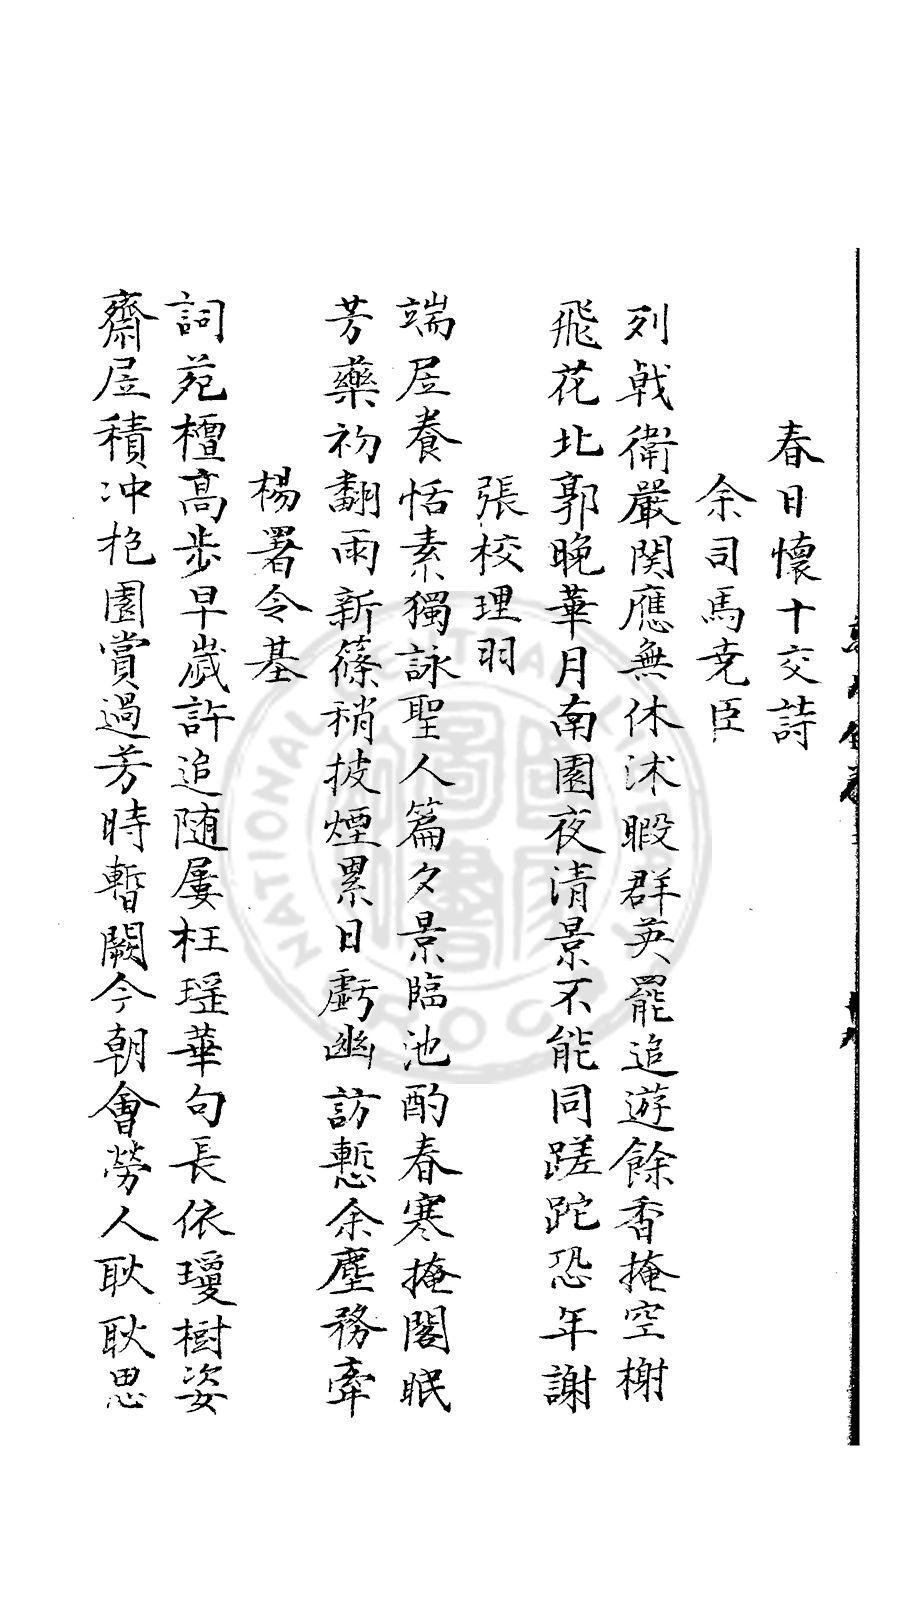 春日懷十交詩
余司馬尭臣
列戟衛嚴関應無休沭暇群英罷追遊餘香掩空榭
飛花北郭晚華月南園夜清景不能同蹉跎恐年謝
張校理羽
端居養恬素獨詠聖人篇夕景臨池酌春寒掩閣眠
芳藥初翻雨新篠稍披煙累日虧幽訪慙余塵務牽
楊署令基
詞苑檀髙步早歲許追随屢枉瑶華句長依瓊樹姿
齋居積冲抱園賞過芳時暫闕今朝會勞人耿耿思
NATIONAL CENTRAL LIBRARY